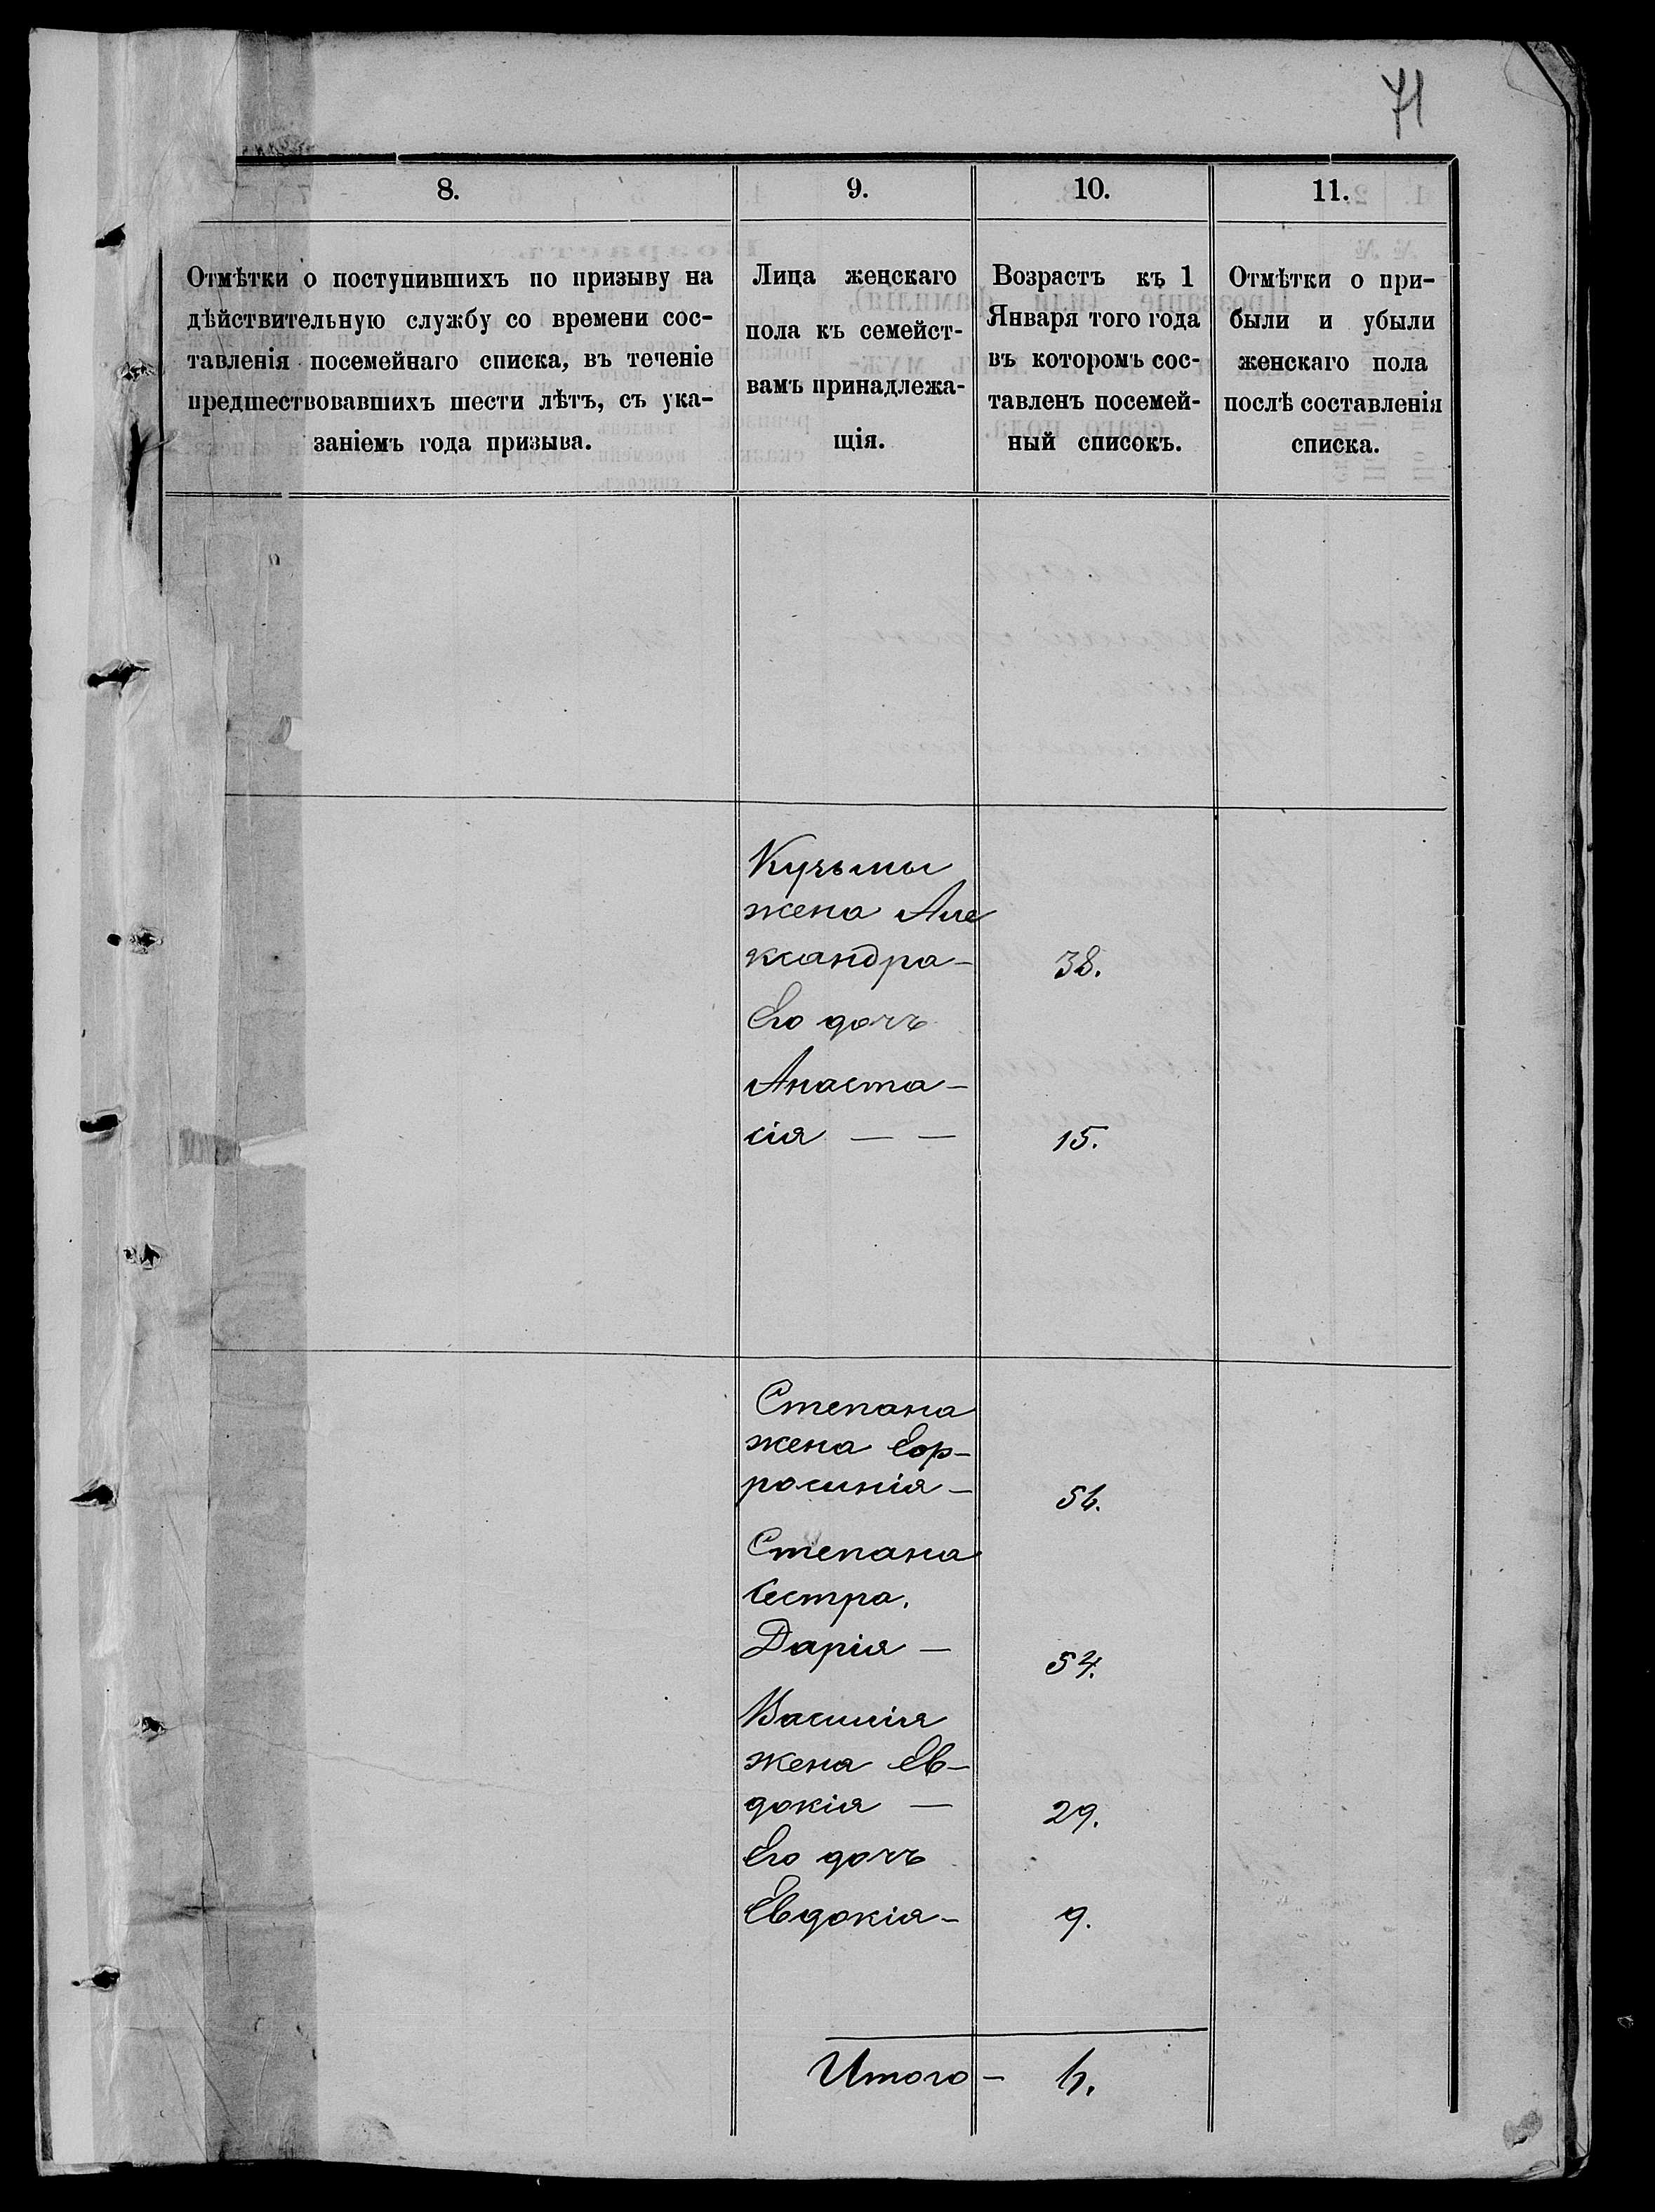 71
8.
9.
10.
11.
Отмѣтки о поступившихъ по призыву на
дѣйствительную службу со времени сос-
тавленія посемейнаго списка, въ теченіе
предшествовавшихъ шести лѣтъ, съ ука-
заніемъ года призыва.
Лица женскаго
пола къ семейст-
вамъ принадлежа-
щія.
Возрастъ къ 1
Января того года
въ которомъ сос-
тавленъ посемей-
ный списокъ.
Отмѣтки о при-
были и убыли
женскаго пола
послѣ составленія
списка.
Кузьмы
жена Але
ксандра- 38.
Его дочь
Анаста-
сія — — 15.
Степана
жена Еф-
росинія- 56.
Степана
Сестра.
Дарія — 54.
Василія
жена Ев-
докія — 29.
Его дочь
Евдокія- 9.
Итого - 6.